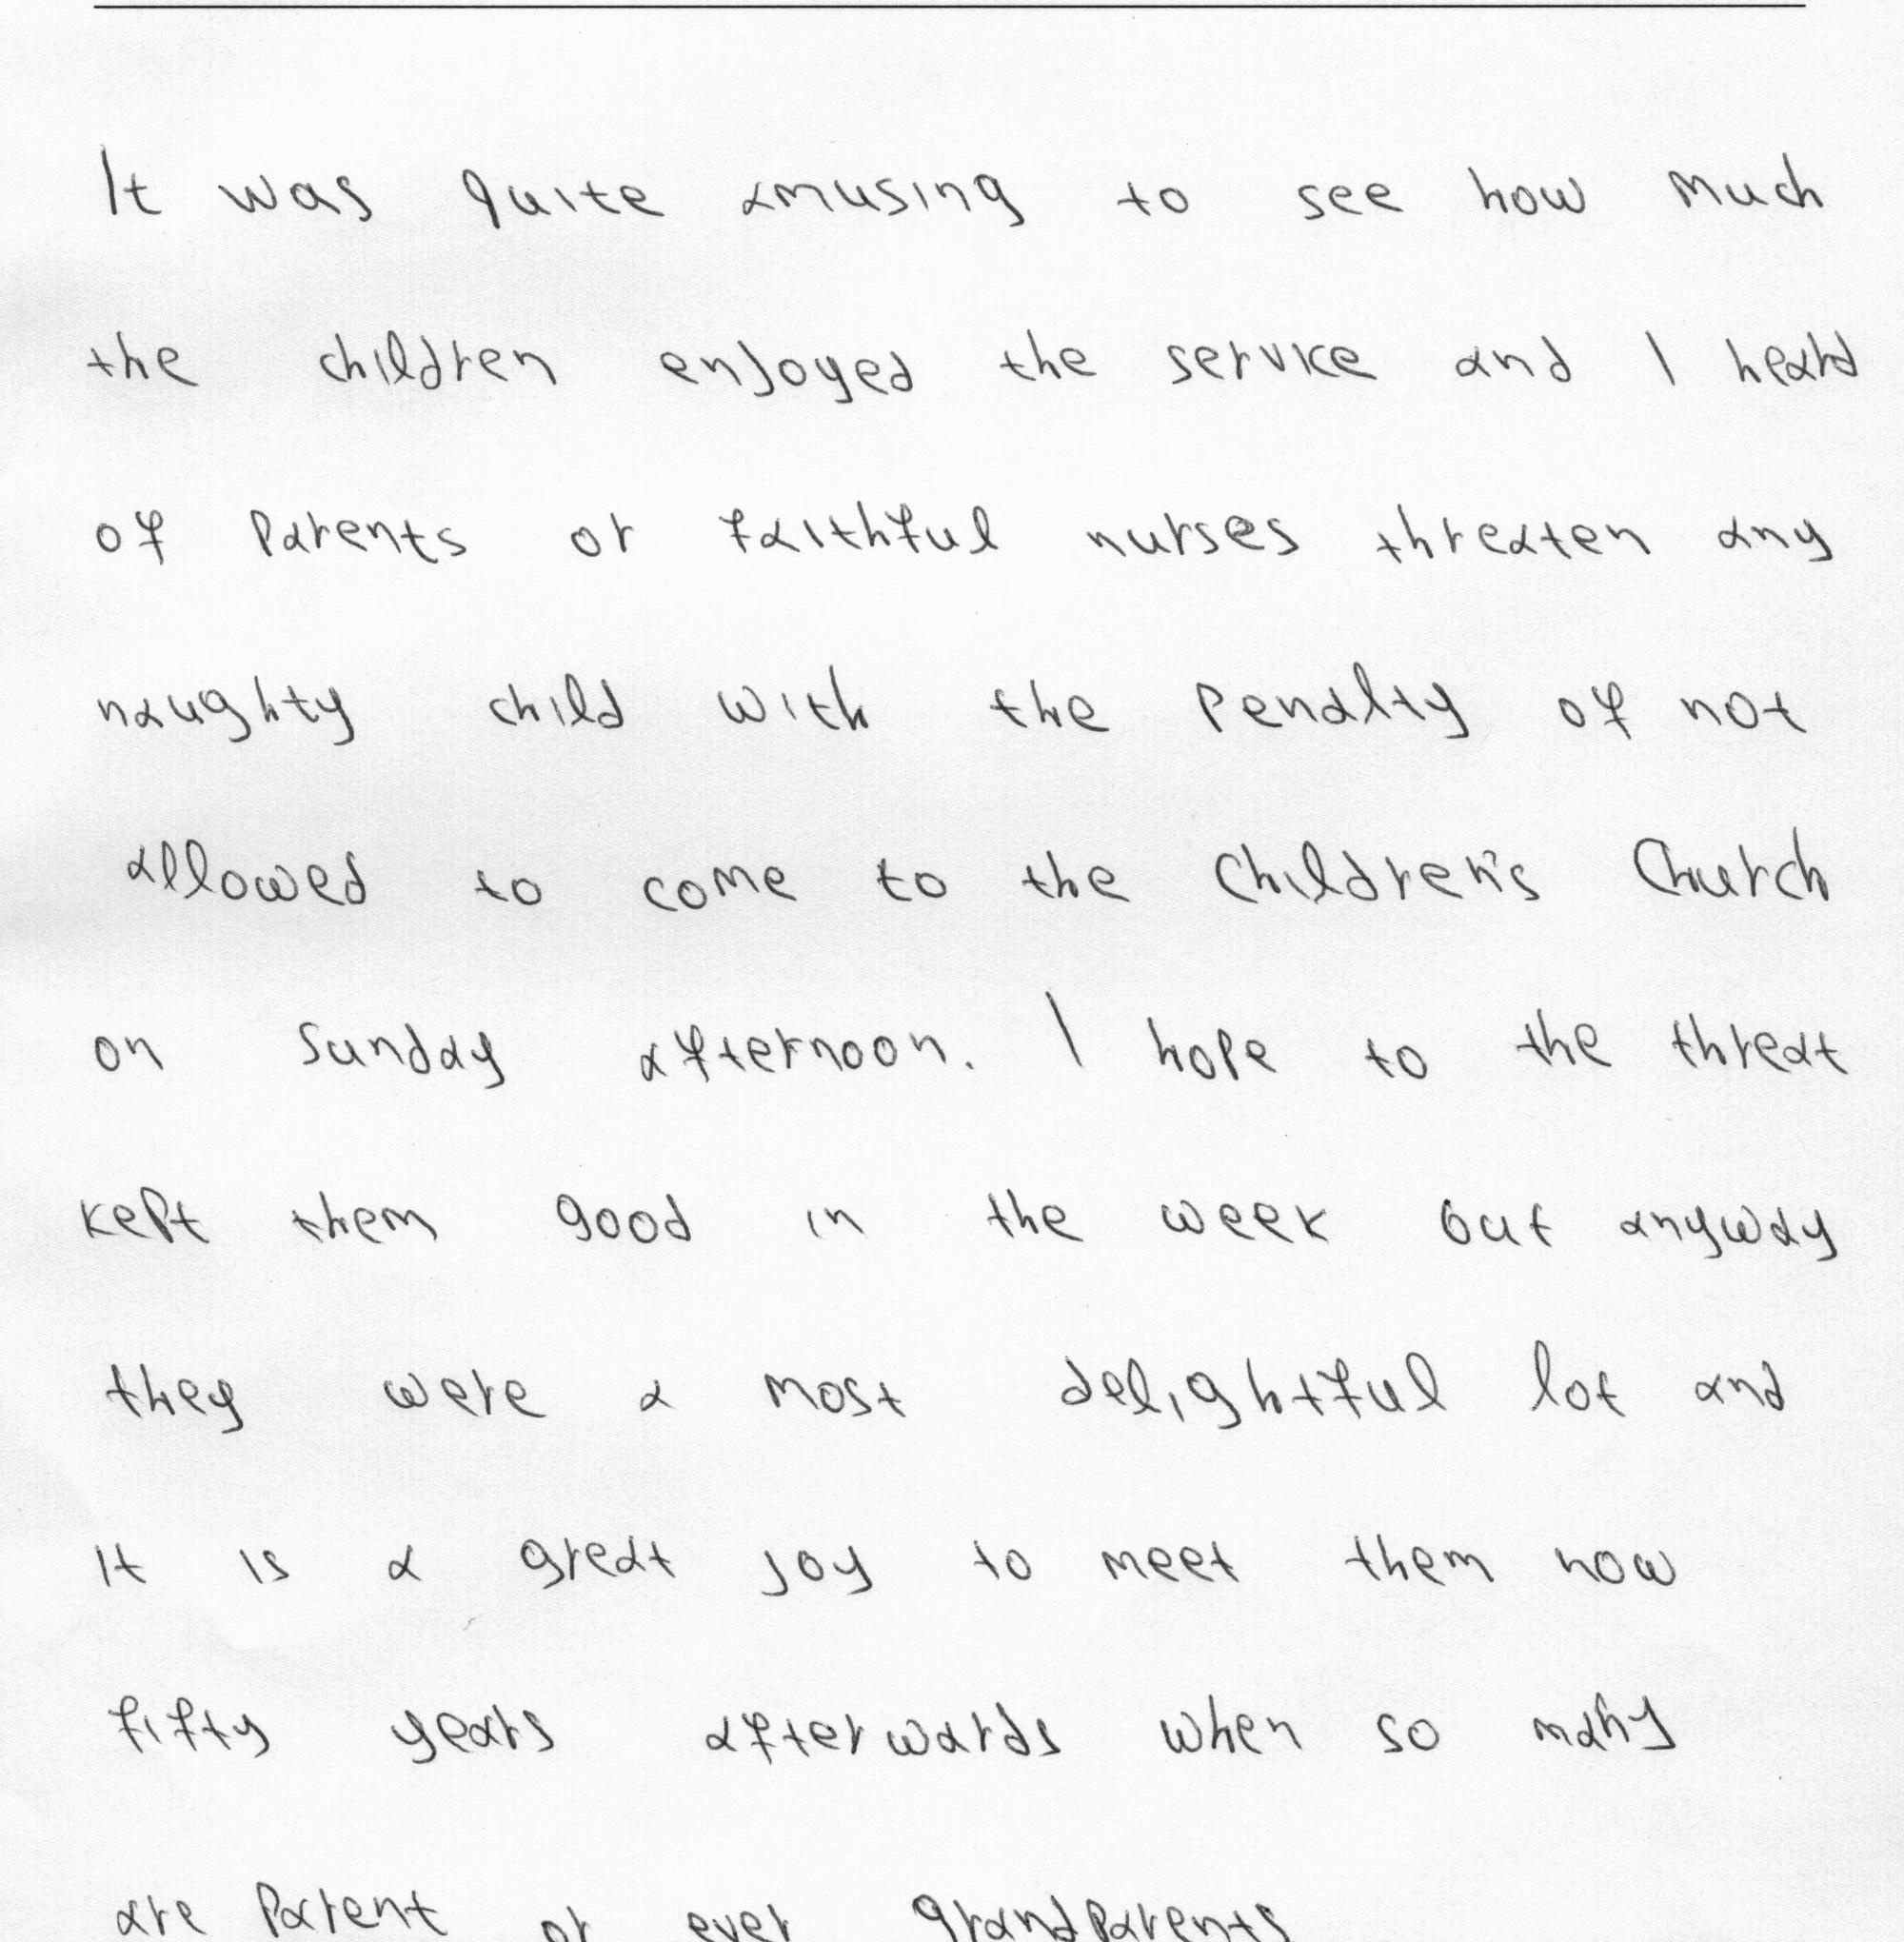 It was quite amusing to see how much
the children enjoyed the service and I heard
of Parents or faithful nurses threaten any
naughty child with the Penalty of not
allowed to come to the Children's Church
on Sunday afternoon. I hope to the threat
kept them good in the week out anyway
they were a most delightful lot and
it is a great joy to meet them now
fifty years afterwards when so many
are Parent or ever grandParents